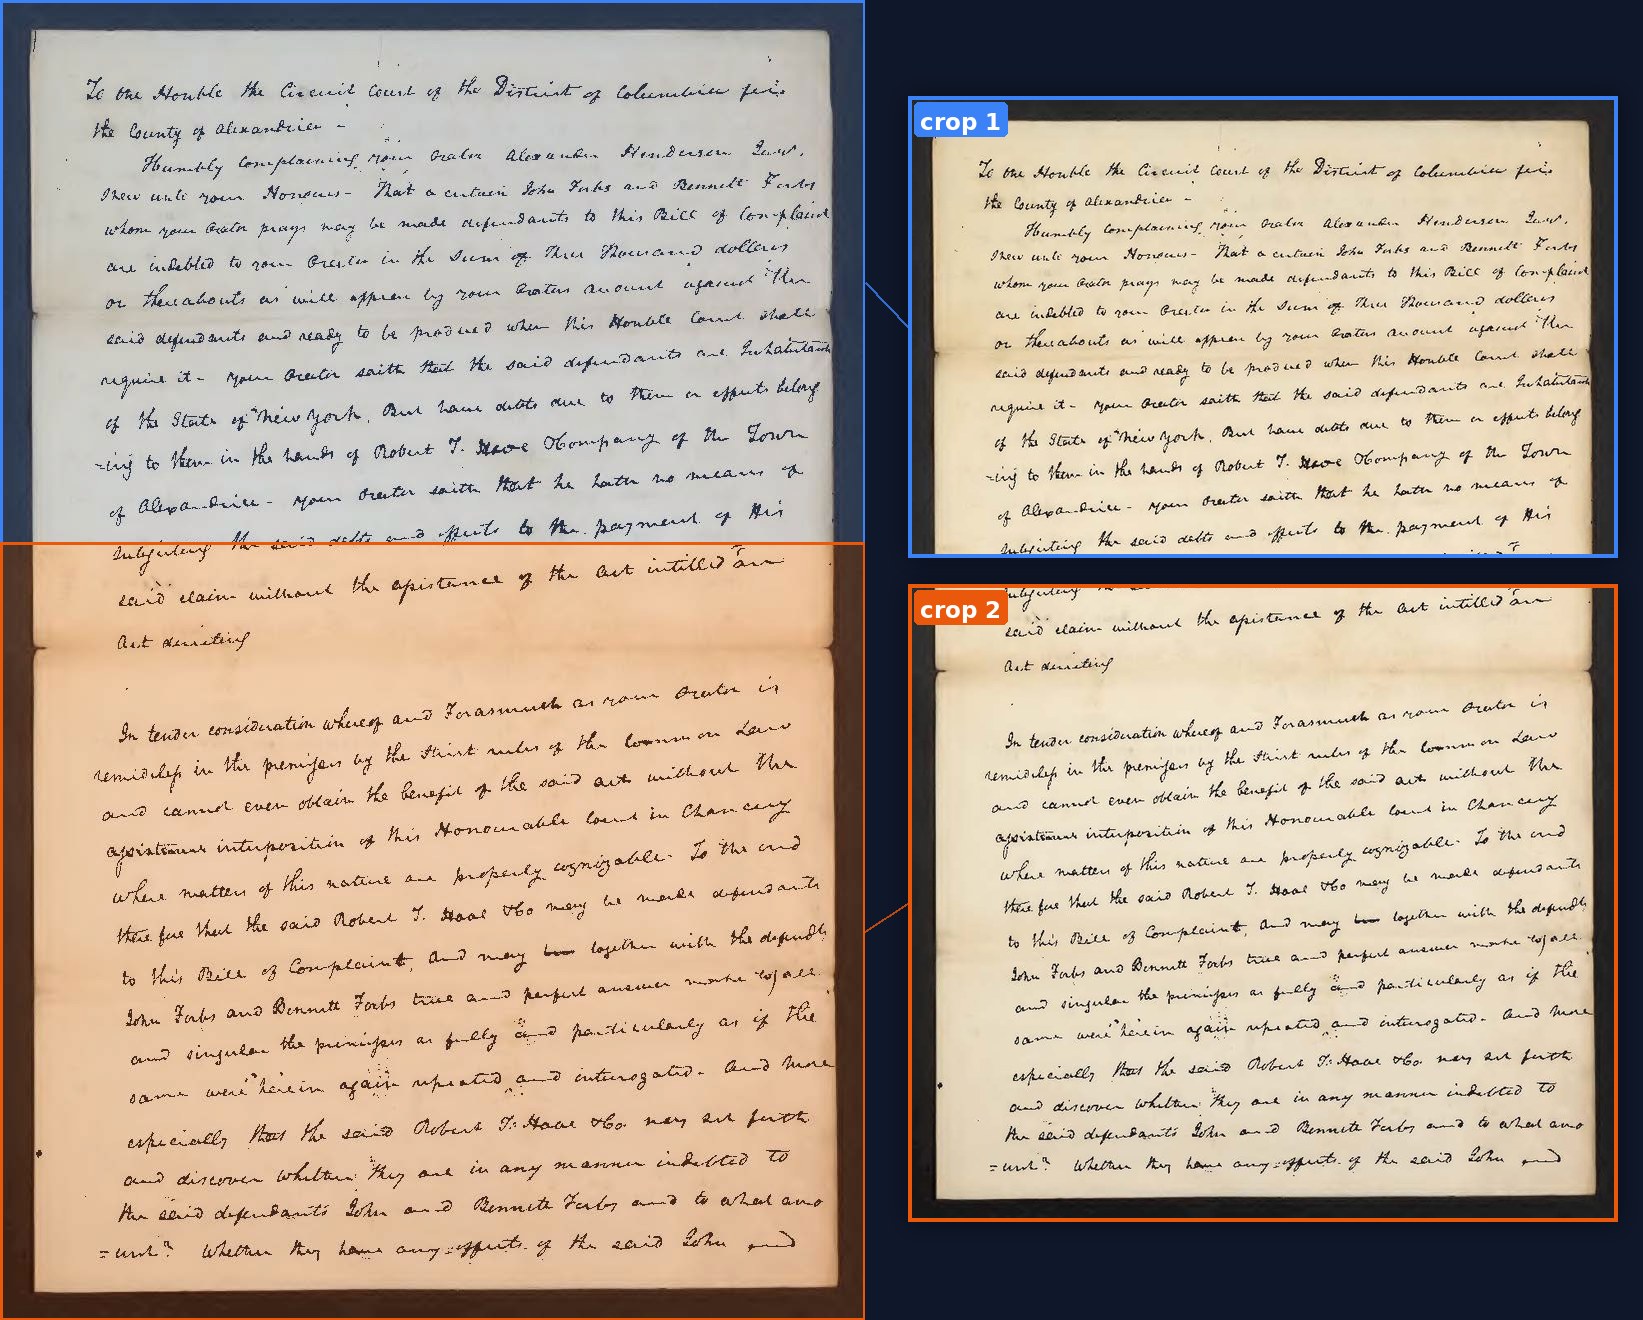 To the Honble the Circuit Court of the District of Columbia for
the County of Alexandria -
Humbly complaining your Orator Alexander Henderson Junr.
Shew unto your Honours - That a certain John Forbs and Bennett Forbs
whom your Orator prays may be made defendants to this Bill of Complaint
are indebted to your Orator in the Sum of Three Thousand dollars
or thereabouts as will appear by your Orators account against The
said defendants and ready to be produced when this Honble Court shall
require it - your Orator saith that the said defendants are Inhabitants
of the State of New York, But have debts due to them or effects belong
-ing to them in the hands of Robert T. Hooe & Company of the Town
of Alexandria - your Orator saith that he hath no means of
subjecting the said debts and effects to the payment of His
said claim without the assistance of the Act intitled "an
Act directing
In tender consideration whereof and Forasmuch as your Orator is
remidiless in the premises by the Strict rules of the Common Law
and cannot even obtain the benefit of the said act without the
assistance interposition of this Honourable Court in Chancery
where matters of this nature are properly cognizable - To the end
therefore that the said Robert T. Hooe & Co may be made defendants
to this Bill of Complaint, and may together with the defendts
John Forbs and Bennett Forbs true and perfect answer make to all
and singular the premises as fully and particularly as if the
same were herein again repeated and interogated - And more
especially that the said Robert T. Hooe & Co. may set forth
and discover whether they are in any manner indebted to
the said defendants John and Bennett Forbs and to what amo
=unt? Whether they have any effects of the said John and